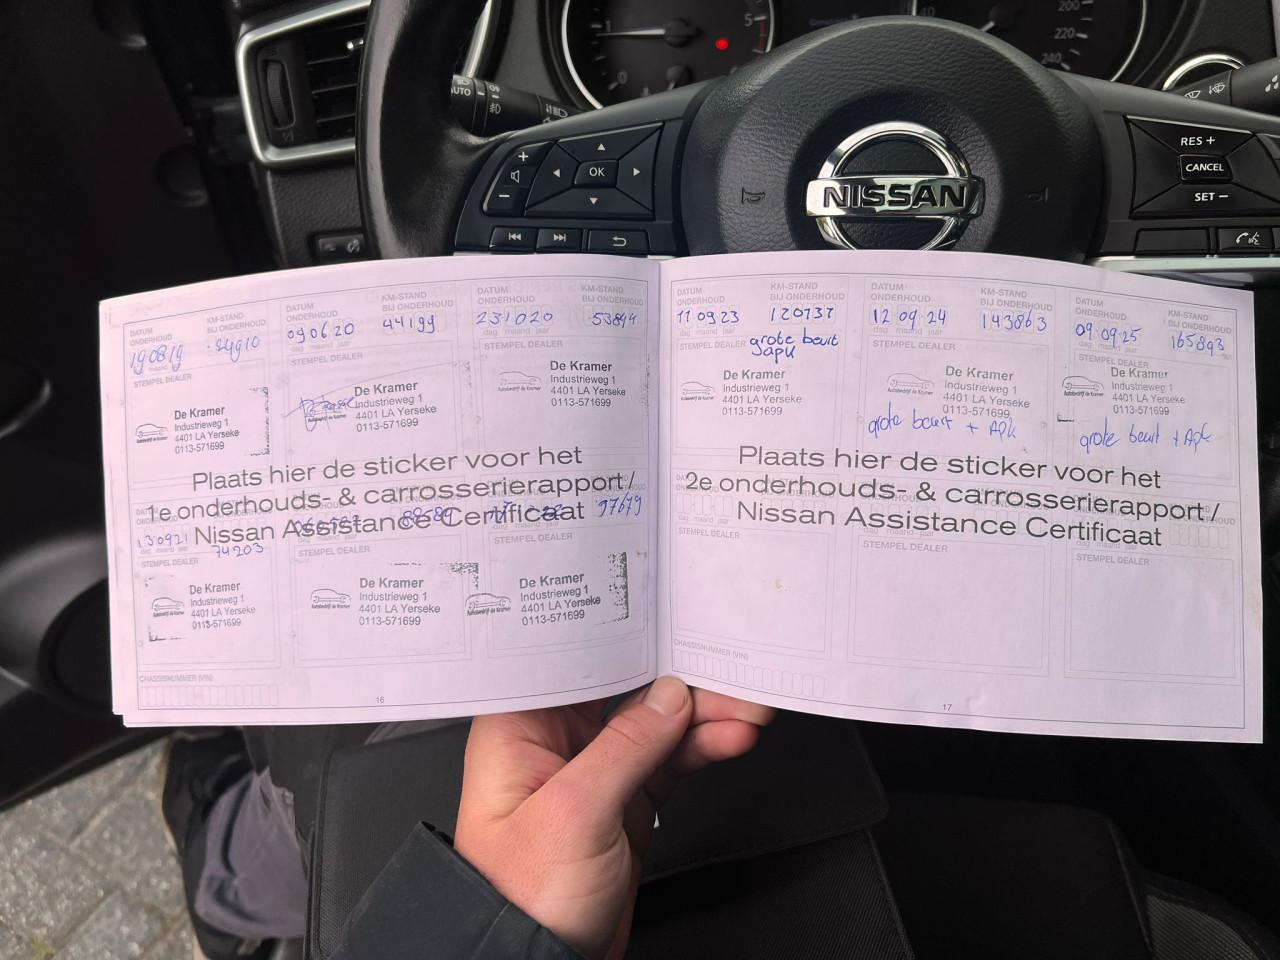 1
5
0
40
200
220
240
AUTO
OK
RES +
CANCEL
SET −
NISSAN
DATUM ONDERHOUD
KM-STAND BIJ ONDERHOUD
190819
24910
dag maand jaar
STEMPEL DEALER
De Kramer
Industrieweg 1
4401 LA Yerseke
0113-571699
Autobedrijf de Kramer
DATUM ONDERHOUD
KM-STAND BIJ ONDERHOUD
090620
44199
dag maand jaar
STEMPEL DEALER
De Kramer
Industrieweg 1
4401 LA Yerseke
0113-571699
DATUM ONDERHOUD
KM-STAND BIJ ONDERHOUD
231020
53844
dag maand jaar
STEMPEL DEALER
De Kramer
Industrieweg 1
4401 LA Yerseke
0113-571699
Autobedrijf de Kramer
Plaats hier de sticker voor het
1e onderhouds- & carrosserierapport /
Nissan Assistance Certificaat
130921
74203
dag maand jaar
STEMPEL DEALER
De Kramer
Industrieweg 1
4401 LA Yerseke
0113-571699
Autobedrijf de Kramer
88589
STEMPEL DEALER
De Kramer
Industrieweg 1
4401 LA Yerseke
0113-571699
Autobedrijf de Kramer
97679
STEMPEL DEALER
De Kramer
Industrieweg 1
4401 LA Yerseke
0113-571699
Autobedrijf de Kramer
CHASSISNUMMER (VIN)
16
DATUM ONDERHOUD
KM-STAND BIJ ONDERHOUD
110923
120737
dag maand jaar
STEMPEL DEALER
grote beurt
apk
De Kramer
Industrieweg 1
4401 LA Yerseke
0113-571699
Autobedrijf de Kramer
DATUM ONDERHOUD
KM-STAND BIJ ONDERHOUD
120924
143863
dag maand jaar
STEMPEL DEALER
De Kramer
Industrieweg 1
4401 LA Yerseke
0113-571699
Autobedrijf de Kramer
grote beurt + Apk
DATUM ONDERHOUD
KM-STAND BIJ ONDERHOUD
090925
165893
dag maand jaar
STEMPEL DEALER
De Kramer
Industrieweg 1
4401 LA Yerseke
0113-571699
Autobedrijf de Kramer
grote beurt + Apk
Plaats hier de sticker voor het
2e onderhouds- & carrosserierapport /
Nissan Assistance Certificaat
STEMPEL DEALER
STEMPEL DEALER
STEMPEL DEALER
CHASSISNUMMER (VIN)
17